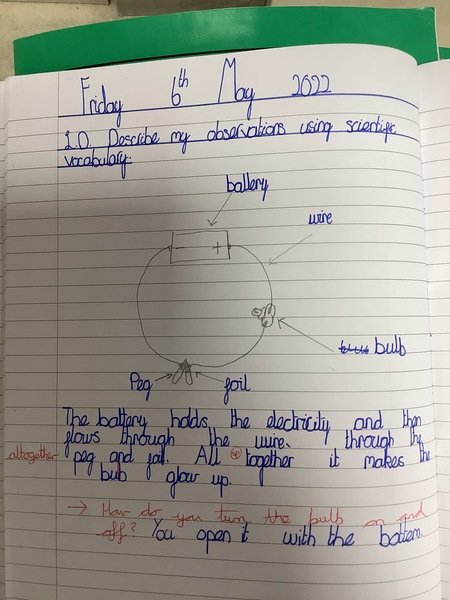 Friday 6th May 2022
L.O. Describe my observations using scientific
vocabulary.
battery
wire
bulb
Peg
foil
The battery holds the electricity and then
flows through the wire. through the
altogether peg and foil. All sp together it makes the
bub glow up.
→ How do you turn the bulb on and
off? You open it with the bottem.